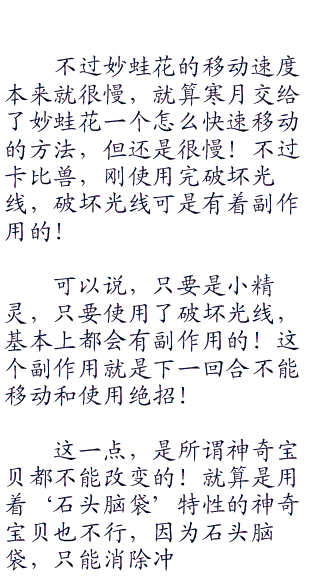 不过妙蛙花的移动速度
本来就很慢，就算寒月交给
了妙蛙花一个怎么快速移动
的方法，但还是很慢！不过
卡比兽，刚使用完破坏光
线，破坏光线可是有着副作
用的！
可以说，只要是小精
灵，只要使用了破坏光线，
基本上都会有副作用的！这
个副作用就是下一回合不能
移动和使用绝招！
这一点，是所谓神奇宝
贝都不能改变的！就算是用
着‘石头脑袋’特性的神奇
宝贝也不行，因为石头脑
袋，只能消除冲